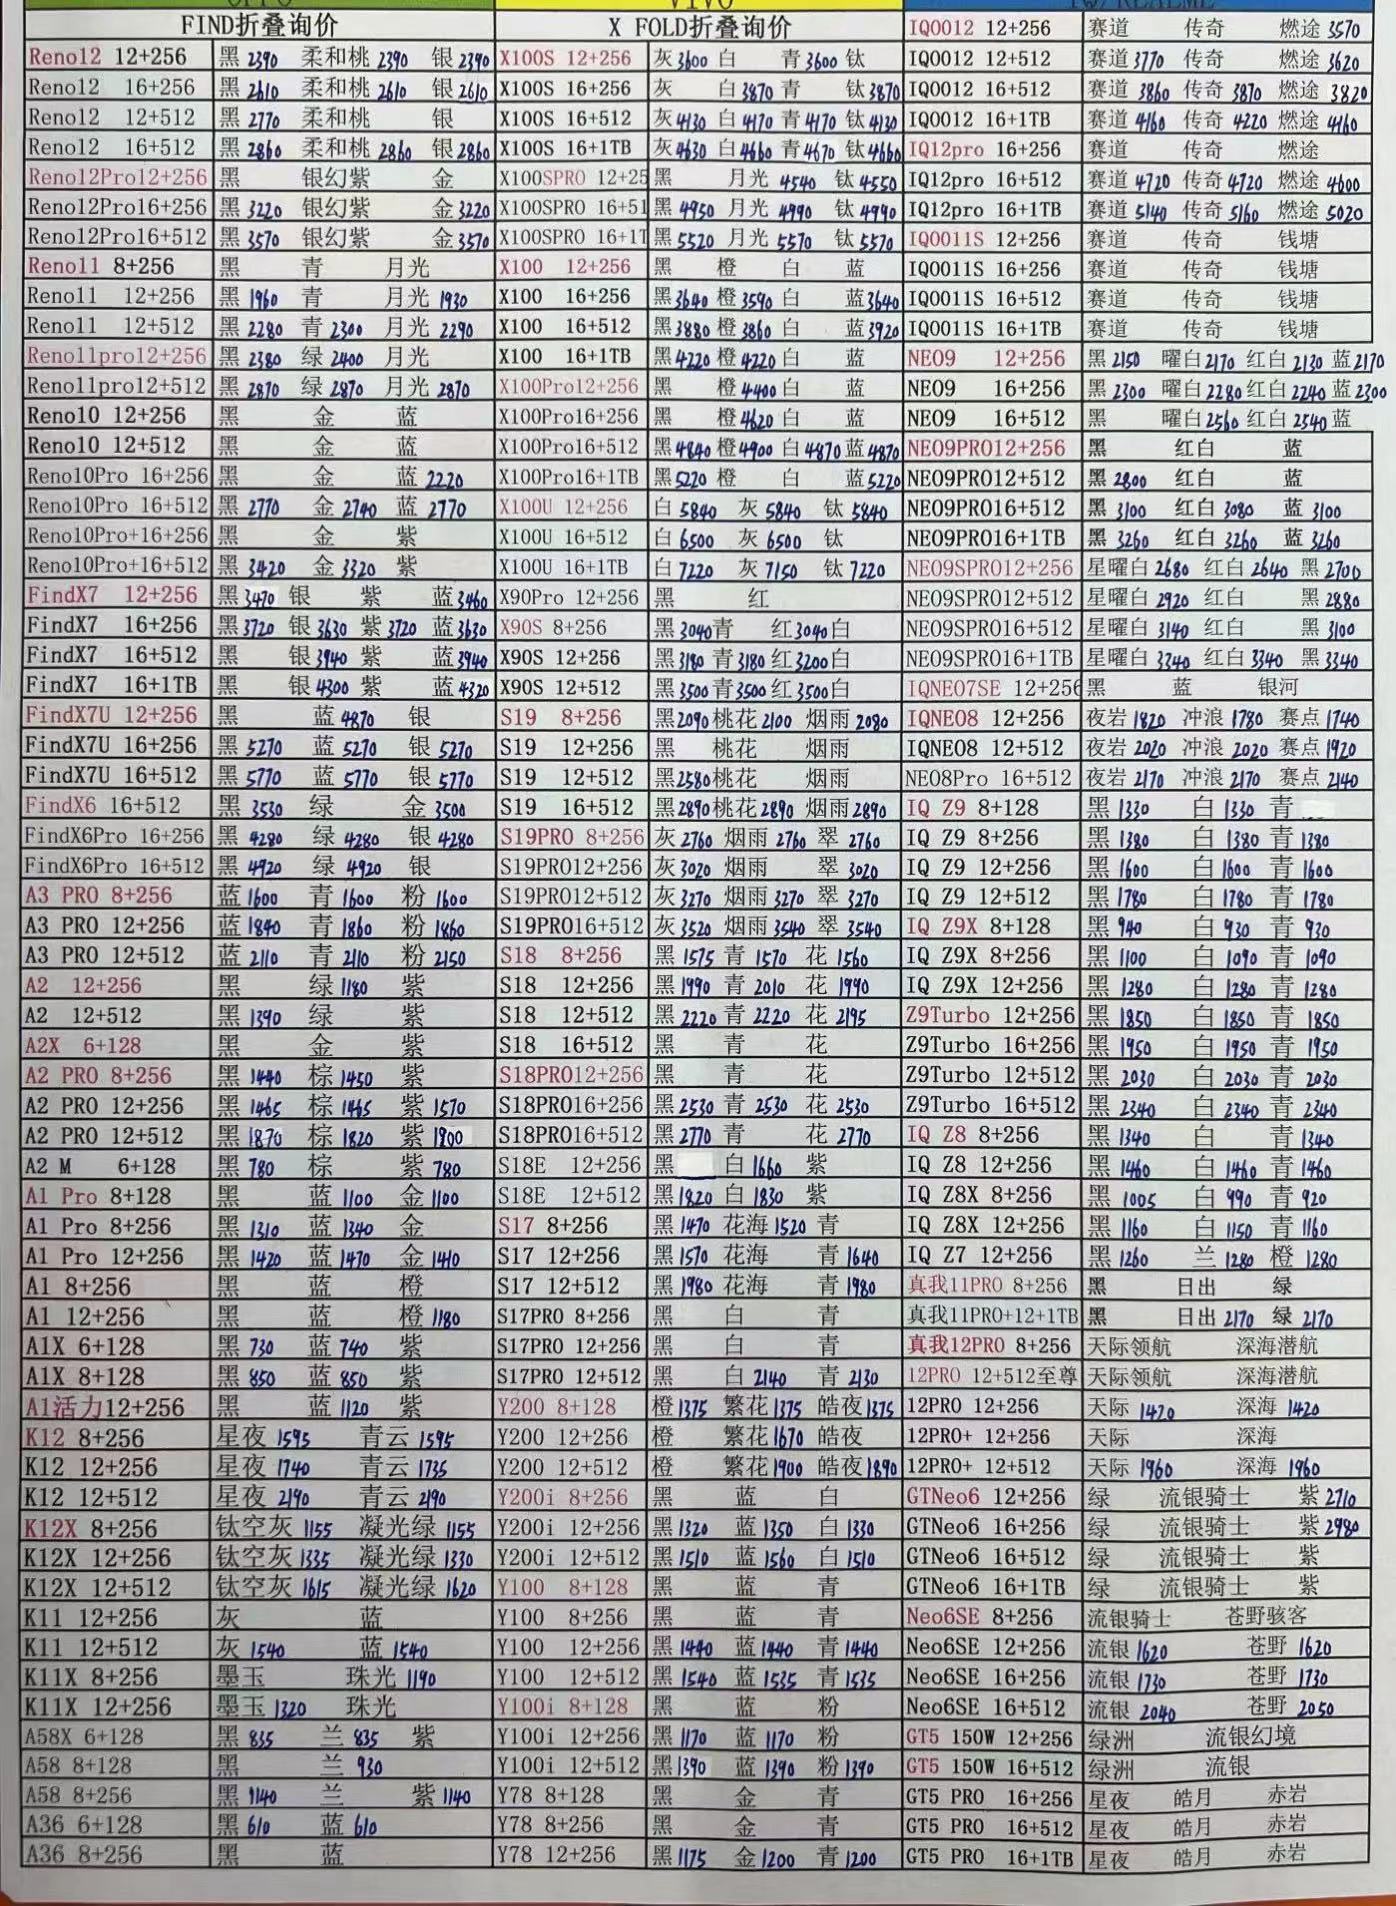 OPPO VIVO IQ/REALME
FIND折叠询价 X FOLD折叠询价 IQOO12 12+256 赛道 传奇 燃途3570
Reno12 12+256 黑2390 柔和桃2390 银2390 X100S 12+256 灰3600 白 青3600 钛 IQOO12 12+512 赛道3770 传奇 燃途3620
Reno12 16+256 黑2610 柔和桃2610 银2610 X100S 16+256 灰 白3870 青 钛3870 IQOO12 16+512 赛道3860 传奇3870 燃途3820
Reno12 12+512 黑2770 柔和桃 银 X100S 16+512 灰4130 白4170 青4170 钛4130 IQOO12 16+1TB 赛道4160 传奇4220 燃途4160
Reno12 16+512 黑2860 柔和桃2860 银2860 X100S 16+1TB 灰4630 白4660 青4670 钛4660 IQ12pro 16+256 赛道 传奇 燃途
Reno12Pro12+256 黑 银幻紫 金 X100SPRO 12+25 黑 月光4540 钛4550 IQ12pro 16+512 赛道4720 传奇4720 燃途4600
Reno12Pro16+256 黑3220 银幻紫 金3220 X100SPRO 16+51 黑4950 月光4990 钛4990 IQ12pro 16+1TB 赛道5140 传奇5160 燃途5020
Reno12Pro16+512 黑3570 银幻紫 金3570 X100SPRO 16+1T 黑5520 月光5570 钛5570 IQOO11S 12+256 赛道 传奇 钱塘
Reno11 8+256 黑 青 月光 X100 12+256 黑 橙 白 蓝 IQOO11S 16+256 赛道 传奇 钱塘
Reno11 12+256 黑1960 青 月光1930 X100 16+256 黑3640 橙3590 白 蓝3640 IQOO11S 16+512 赛道 传奇 钱塘
Reno11 12+512 黑2280 青2300 月光2290 X100 16+512 黑3880 橙3860 白 蓝3920 IQOO11S 16+1TB 赛道 传奇 钱塘
Reno11pro12+256 黑2380 绿2400 月光 X100 16+1TB 黑4220 橙4220 白 蓝 NEO9 12+256 黑2150 曜白2170 红白2130 蓝2170
Reno11pro12+512 黑2870 绿2870 月光2870 X100Pro12+256 黑 橙4400 白 蓝 NEO9 16+256 黑2300 曜白2280 红白2240 蓝2300
Reno10 12+256 黑 金 蓝 X100Pro16+256 黑 橙4620 白 蓝 NEO9 16+512 黑 曜白2560 红白2540 蓝
Reno10 12+512 黑 金 蓝 X100Pro16+512 黑4840 橙4900 白4870 蓝4870 NEO9PRO12+256 黑 红白 蓝
Reno10Pro 16+256 黑 金 蓝2220 X100Pro16+1TB 黑5220 橙 白 蓝5220 NEO9PRO12+512 黑2800 红白 蓝
Reno10Pro 16+512 黑2770 金2740 蓝2770 X100U 12+256 白5840 灰5840 钛5840 NEO9PRO16+512 黑3100 红白3080 蓝3100
Reno10Pro+16+256 黑 金 紫 X100U 16+512 白6500 灰6500 钛 NEO9PRO16+1TB 黑3260 红白3260 蓝3260
Reno10Pro+16+512 黑3420 金3320 紫 X100U 16+1TB 白7220 灰7150 钛7220 NEO9SPRO12+256 星曜白2680 红白2640 黑2700
FindX7 12+256 黑3470 银 紫 蓝3460 X90Pro 12+256 黑 红 NEO9SPRO12+512 星曜白2920 红白 黑2880
FindX7 16+256 黑3720 银3630 紫3720 蓝3630 X90S 8+256 黑3040 青 红3040 白 NEO9SPRO16+512 星曜白3140 红白 黑3100
FindX7 16+512 黑 银3940 紫 蓝3940 X90S 12+256 黑3180 青3180 红3200 白 NEO9SPRO16+1TB 星曜白3340 红白3340 黑3340
FindX7 16+1TB 黑 银4300 紫 蓝4320 X90S 12+512 黑3500 青3500 红3500 白 IQNEO7SE 12+256 黑 蓝 银河
FindX7U 12+256 黑 蓝4870 银 S19 8+256 黑2090 桃花2100 烟雨2080 IQNEO8 12+256 夜岩1820 冲浪1780 赛点1740
FindX7U 16+256 黑5270 蓝5270 银5270 S19 12+256 黑 桃花 烟雨 IQNEO8 12+512 夜岩2020 冲浪2020 赛点1920
FindX7U 16+512 黑5770 蓝5770 银5770 S19 12+512 黑2580 桃花 烟雨 NEO8Pro 16+512 夜岩2170 冲浪2170 赛点2140
FindX6 16+512 黑3530 绿 金3500 S19 16+512 黑2890 桃花2890 烟雨2890 IQ Z9 8+128 黑1330 白1330 青
FindX6Pro 16+256 黑4280 绿4280 银4280 S19PRO 8+256 灰2760 烟雨2760 翠2760 IQ Z9 8+256 黑1380 白1380 青1380
FindX6Pro 16+512 黑4920 绿4920 银 S19PRO12+256 灰3020 烟雨 翠3020 IQ Z9 12+256 黑1600 白1600 青1600
A3 PRO 8+256 蓝1600 青1600 粉1600 S19PRO12+512 灰3270 烟雨3270 翠3270 IQ Z9 12+512 黑1780 白1780 青1780
A3 PRO 12+256 蓝1840 青1860 粉1860 S19PRO16+512 灰3520 烟雨3540 翠3540 IQ Z9X 8+128 黑940 白930 青930
A3 PRO 12+512 蓝2110 青2110 粉2150 S18 8+256 黑1575 青1570 花1560 IQ Z9X 8+256 黑1100 白1090 青1090
A2 12+256 黑 绿1180 紫 S18 12+256 黑1990 青2010 花1990 IQ Z9X 12+256 黑1280 白1280 青1280
A2 12+512 黑1390 绿 紫 S18 12+512 黑2220 青2220 花2195 Z9Turbo 12+256 黑1850 白1850 青1850
A2X 6+128 黑 金 紫 S18 16+512 黑 青 花 Z9Turbo 16+256 黑1950 白1950 青1950
A2 PRO 8+256 黑1440 棕1450 紫 S18PRO12+256 黑 青 花 Z9Turbo 12+512 黑2030 白2030 青2030
A2 PRO 12+256 黑1465 棕1465 紫1570 S18PRO16+256 黑2530 青2530 花2530 Z9Turbo 16+512 黑2340 白2340 青2340
A2 PRO 12+512 黑1870 棕1820 紫1800 S18PRO16+512 黑2770 青 花2770 IQ Z8 8+256 黑1340 白 青1340
A2 M 6+128 黑780 棕 紫780 S18E 12+256 黑 白1660 紫 IQ Z8 12+256 黑1460 白1460 青1460
A1 Pro 8+128 黑 蓝1100 金1100 S18E 12+512 黑1820 白1830 紫 IQ Z8X 8+256 黑1005 白990 青920
A1 Pro 8+256 黑1310 蓝1340 金 S17 8+256 黑1470 花海1520 青 IQ Z8X 12+256 黑1160 白1150 青1160
A1 Pro 12+256 黑1420 蓝1470 金1440 S17 12+256 黑1570 花海 青1640 IQ Z7 12+256 黑1260 兰1280 橙1280
A1 8+256 黑 蓝 橙 S17 12+512 黑1980 花海 青1980 真我11PRO 8+256 黑 日出 绿
A1 12+256 黑 蓝 橙1180 S17PRO 8+256 黑 白 青 真我11PRO+12+1TB 黑 日出2170 绿2170
A1X 6+128 黑730 蓝740 紫 S17PRO 12+256 黑 白 青 真我12PRO 8+256 天际领航 深海潜航
A1X 8+128 黑850 蓝850 紫 S17PRO 12+512 黑 白2140 青2130 12PRO 12+512至尊 天际领航 深海潜航
A1活力12+256 黑 蓝1120 紫 Y200 8+128 橙1375 繁花1375 皓夜1375 12PRO 12+256 天际1420 深海1420
K12 8+256 星夜1595 青云1595 Y200 12+256 橙 繁花1670 皓夜 12PRO+ 12+256 天际 深海
K12 12+256 星夜1740 青云1735 Y200 12+512 橙 繁花1900 皓夜1890 12PRO+ 12+512 天际1960 深海1960
K12 12+512 星夜2190 青云2190 Y200i 8+256 黑 蓝 白 GTNeo6 12+256 绿 流银骑士 紫2710
K12X 8+256 钛空灰1155 凝光绿1155 Y200i 12+256 黑1320 蓝1350 白1330 GTNeo6 16+256 绿 流银骑士 紫2980
K12X 12+256 钛空灰1335 凝光绿1330 Y200i 12+512 黑1510 蓝1560 白1510 GTNeo6 16+512 绿 流银骑士 紫
K12X 12+512 钛空灰1615 凝光绿1620 Y100 8+128 黑 蓝 青 GTNeo6 16+1TB 绿 流银骑士 紫
K11 12+256 灰 蓝 Y100 8+256 黑 蓝 青 Neo6SE 8+256 流银骑士 苍野骇客
K11 12+512 灰1540 蓝1540 Y100 12+256 黑1440 蓝1440 青1440 Neo6SE 12+256 流银1620 苍野1620
K11X 8+256 墨玉 珠光1190 Y100 12+512 黑1540 蓝1535 青1535 Neo6SE 16+256 流银1730 苍野1730
K11X 12+256 墨玉1320 珠光 Y100i 8+128 黑 蓝 粉 Neo6SE 16+512 流银2040 苍野2050
A58X 6+128 黑835 兰835 紫 Y100i 12+256 黑1170 蓝1170 粉 GT5 150W 12+256 绿洲 流银幻境
A58 8+128 黑 兰930 Y100i 12+512 黑1390 蓝1390 粉1390 GT5 150W 16+512 绿洲 流银
A58 8+256 黑1140 兰 紫1140 Y78 8+128 黑 金 青 GT5 PRO 16+256 星夜 皓月 赤岩
A36 6+128 黑610 蓝610 Y78 8+256 黑 金 青 GT5 PRO 16+512 星夜 皓月 赤岩
A36 8+256 黑 蓝 Y78 12+256 黑1175 金1200 青1200 GT5 PRO 16+1TB 星夜 皓月 赤岩